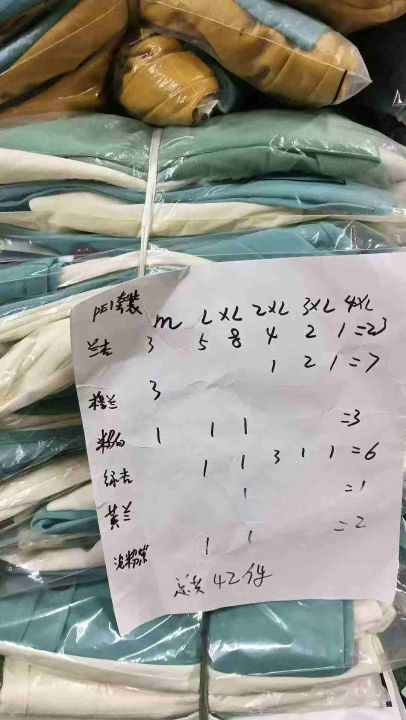 PE1套装 m L XL 2XL 3XL 4XL
兰杏 3 5 8 4 2 1=23
橙兰 3 1 2 1=7
粉白 1 1 1 =3
绿杏 1 1 3 1 1=6
黄兰 1 =1
1 1 =2
总共42件